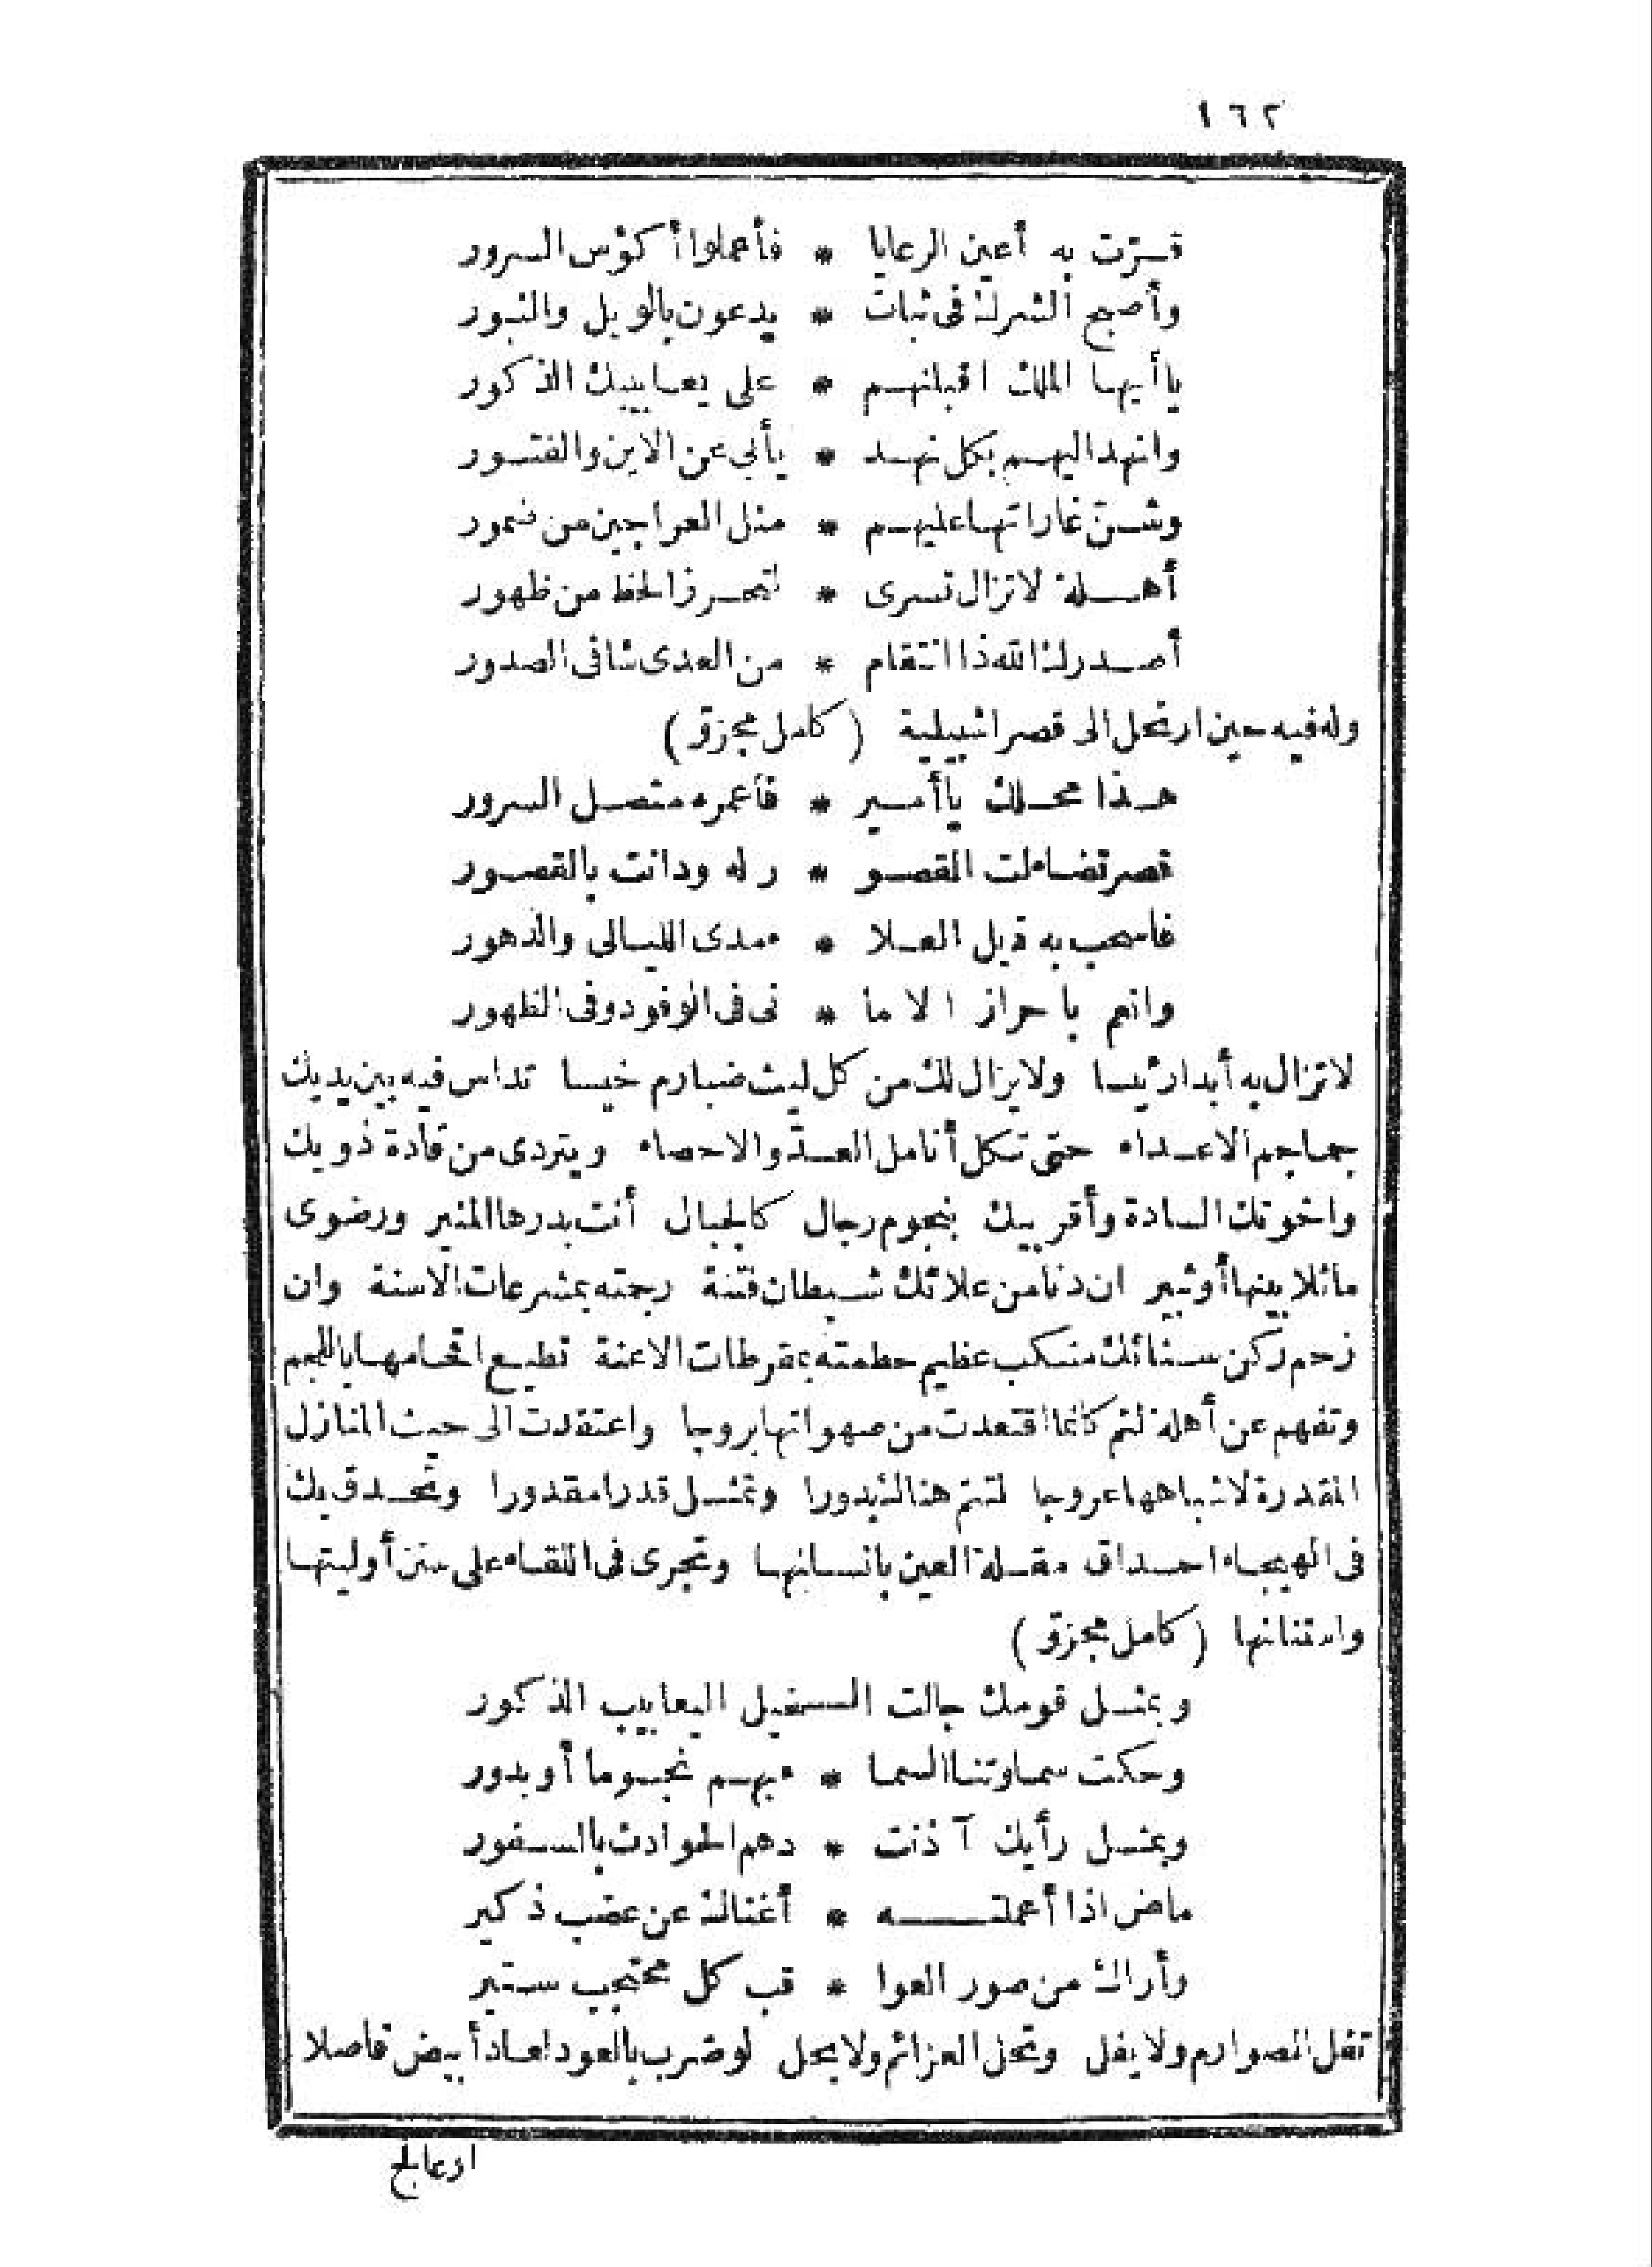 ١٦٢
فسرّت به أعين الرعايا * فأعملوا أكؤس السرور
وأصبح الشرك فى ثبات * يدعون بالويل والثبور
يا أيها الملك اقبلنهم * على يعابيبك الذكور
وانهد اليهم بكل نهد * يأبى عن الاين والفتور
وشنّ غاراتها عليهم * مثل العراجين من ضمور
أهلة لا تزال تسرى * لتحرز الحظ من ظهور
أصدرك الله ذا انتقام * من العدى شافى الصدور
وله فيه حين ارتحل الى قصر اشبيلية (كامل مجزوّ)
هذا محلك يا أمير * فأعمره متصل السرور
قصر تضاءلت القصو * ر له ودانت بالقصور
فاسحب به ذيل العلا * ء مدى الليالى والدهور
وانعم باحراز الاما * نى فى الوفود وفى الظهور
لا تزال به أبدا رئيسا ولا يزال لك من كل ليث ضبارم خيسا تداس فيه بين يديك
جماجم الاعداء حتى تكل أنامل العدّ والاحصاء ويتردى من قادة ذويك
واخوتك السادة وأقربيك بنجوم رجال كالجبال أنت بدرها المنير ورضوى
ماثلا بينها أو ثبير ان دنا من علائك شيطان فتنة رجمته بمشرعات الاسنة وان
زحم ركن سنائك منكب عظيم حطمته بمقرطات الاعنة تطيع اقحامها باللجم
وتفهم عن أهلة لثم كانما اقتعدت من صهواتها بروجا واعتقدت الى حيث المنازل
المقدرة لاشباهها عروجا لتتم هنالك بدورا وتمثل قدرا مقدورا وتحدق بك
فى الهيجاء احداق مقلة العين بانسانها وتجرى فى اللقاء على سنن أوليتها
واستنانها (كامل مجزوّ)
وبمثل قومك جالت الـخيل اليعابيب الذكور
وحكت سماوتنا السما * ء بهم نجوما أو بدور
وبمثل رأيك آذنت * دهم الحوادث بالسفور
ماض اذا أعملتـه * أغناك عن عضب ذكير
وأراك من صور العوا * قب كل محتجب ستير
تفل الصوارم ولا يفل وتحل العزائم ولا يحل لو ضرب بالعود لعاد أبيض فاصلا
ازعالج